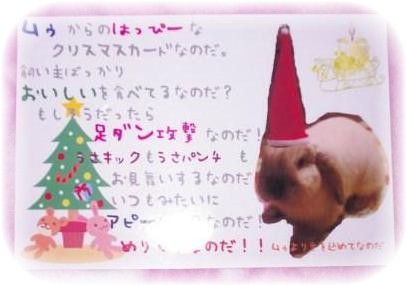 ムゥからのはっぴーな
クリスマスカードなのだ。
飼い主ばっかり
おいしいを食べてるなのだ?
もしそうだったら
足ダン攻撃なのだ!
うさキックもうさパンチも
お見舞いするなのだ
いつもみたいに
アピー なのだ!
めり なのだ!!
ムゥより を込めてなのだ